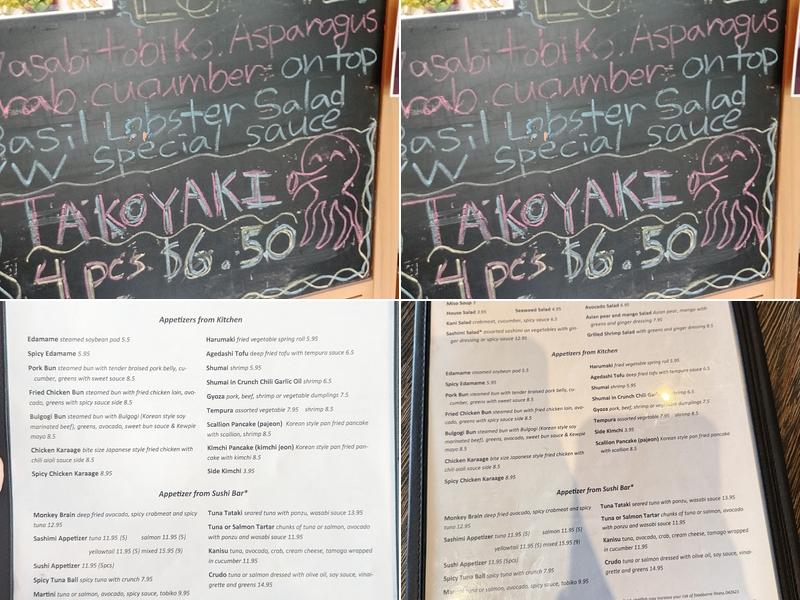 asabi tobiko. Asparagus
cucumber on top
Basil Lobster Salad
W special sauce
TAKOYAKI
4 pcs. $6.50
asabi tobiko. Asparagus
cucumber on top
Basil Lobster Salad
W special sauce
TAKOYAKI
4 pcs. $6.50
Appetizers from Kitchen
Edamame steamed soybean pod 5.5
Spicy Edamame 5.95
Pork Bun steamed bun with tender braised pork belly, cu-
cumber, greens with sweet sauce 8.5
Fried Chicken Bun steamed bun with fried chicken loin, avo-
cado, greens with spicy sauce side 8.5
Bulgogi Bun steamed bun with Bulgogi (Korean style soy
marinated beef), greens, avocado, sweet bun sauce & Kewpie
mayo 8.5
Chicken Karaage bite size Japanese style fried chicken with
chili aioli sauce side 8.5
Spicy Chicken Karaage 8.95
Harumaki fried vegetable spring roll 5.95
Agedashi Tofu deep fried tofu with tempura sauce 6.5
Shumai shrimp 5.95
Shumai in Crunch Chili Garlic Oil shrimp 6.5
Gyoza pork, beef, kimchi, or vegetable dumplings 7.5
Tempura assorted vegetable 7.95 shrimp 8.5
Scallion Pancake (pajeon) Korean style pan fried pancake
with scallion, shrimp 8.5
Kimchi Pancake (kimchi jeon) Korean style pan fried pan-
cake with kimchi 8.5
Side Kimchi 3.95
Appetizer from Sushi Bar*
Monkey Brain deep fried avocado, spicy crabmeat and spicy
tuna 12.95
Sashimi Appetizer tuna 11.95 (5) salmon 11.95 (5)
yellowtail 11.95 (5) mixed 15.95 (9)
Sushi Appetizer 11.95 (5pcs)
Spicy Tuna Ball spicy tuna with crunch 7.95
Martini tuna or salmon, avocado, spicy sauce, tobiko 9.95
Tuna Tataki seared tuna with ponzu, wasabi sauce 13.95
Tuna or Salmon Tartar chunks of tuna or salmon, avocado
with ponzu and wasabi sauce 11.95
Kanisu tuna, avocado, crab, cream cheese, tamago wrapped
in cucumber 11.95
Crudo tuna or salmon dressed with olive oil, soy sauce, vinai-
grette and greens 14.95
Miso Soup 3
House Salad 3.95
Seaweed Salad 4.95
Kani Salad crabmeat, cucumber, spicy sauce 6.5
Sashimi Salad* assorted sashimi on vegetables with gin-
ger dressing or spicy sauce 12.95
Avocado Salad 6.95
Asian pear and mango Salad Asian pear, mango with
greens and ginger dressing 7.95
Grilled Shrimp Salad with greens and ginger dressing 8.5
Appetizers from Kitchen
Edamame steamed soybean pod 5.5
Spicy Edamame 5.95
Pork Bun steamed bun with tender braised pork belly, cu-
cumber, greens with sweet sauce 8.5
Fried Chicken Bun steamed bun with fried chicken loin, avo-
cado, greens with spicy sauce side 8.5
Bulgogi Bun steamed bun with Bulgogi (Korean style soy
marinated beef), greens, avocado, sweet bun sauce & Kewpie
mayo 8.5
Chicken Karaage bite size Japanese style fried chicken with
chili aioli sauce side 8.5
Spicy Chicken Karaage 8.95
Harumaki fried vegetable spring roll 5.95
Agedashi Tofu deep fried tofu with tempura sauce 6.5
Shumai shrimp 5.95
Shumai in Crunch Chili shrimp 6.5
Gyoza pork, beef, kimchi, vegetable dumplings 7.5
Tempura assorted vegetable 7.95 shrimp 8.5
Scallion Pancake (pajeon) Korean style pan fried pancake
with scallion, shrimp 8.5
Kimchi Pancake (kimchi jeon) Korean style pan fried pan-
cake with kimchi 8.5
Side Kimchi 3.95
Appetizer from Sushi Bar*
Monkey Brain deep fried avocado, spicy crabmeat and spicy
tuna 12.95
Sashimi Appetizer tuna 11.95 (5) salmon 11.95 (5)
yellowtail 11.95 (5) mixed 15.95 (9)
Sushi Appetizer 11.95 (5pcs)
Spicy Tuna Ball spicy tuna with crunch 7.95
tuna or salmon, avocado, spicy sauce, tobiko 9.95
Tuna Tataki seared tuna with ponzu, wasabi sauce 13.95
Tuna or Salmon Tartar chunks of tuna or salmon, avocado
with ponzu and wasabi sauce 11.95
Kanisu tuna, avocado, crab, cream cheese, tamago wrapped
in cucumber 11.95
Crudo tuna or salmon dressed with olive oil, soy sauce, vinai-
grette and greens 14.95
may increase your risk of foodborne illness.